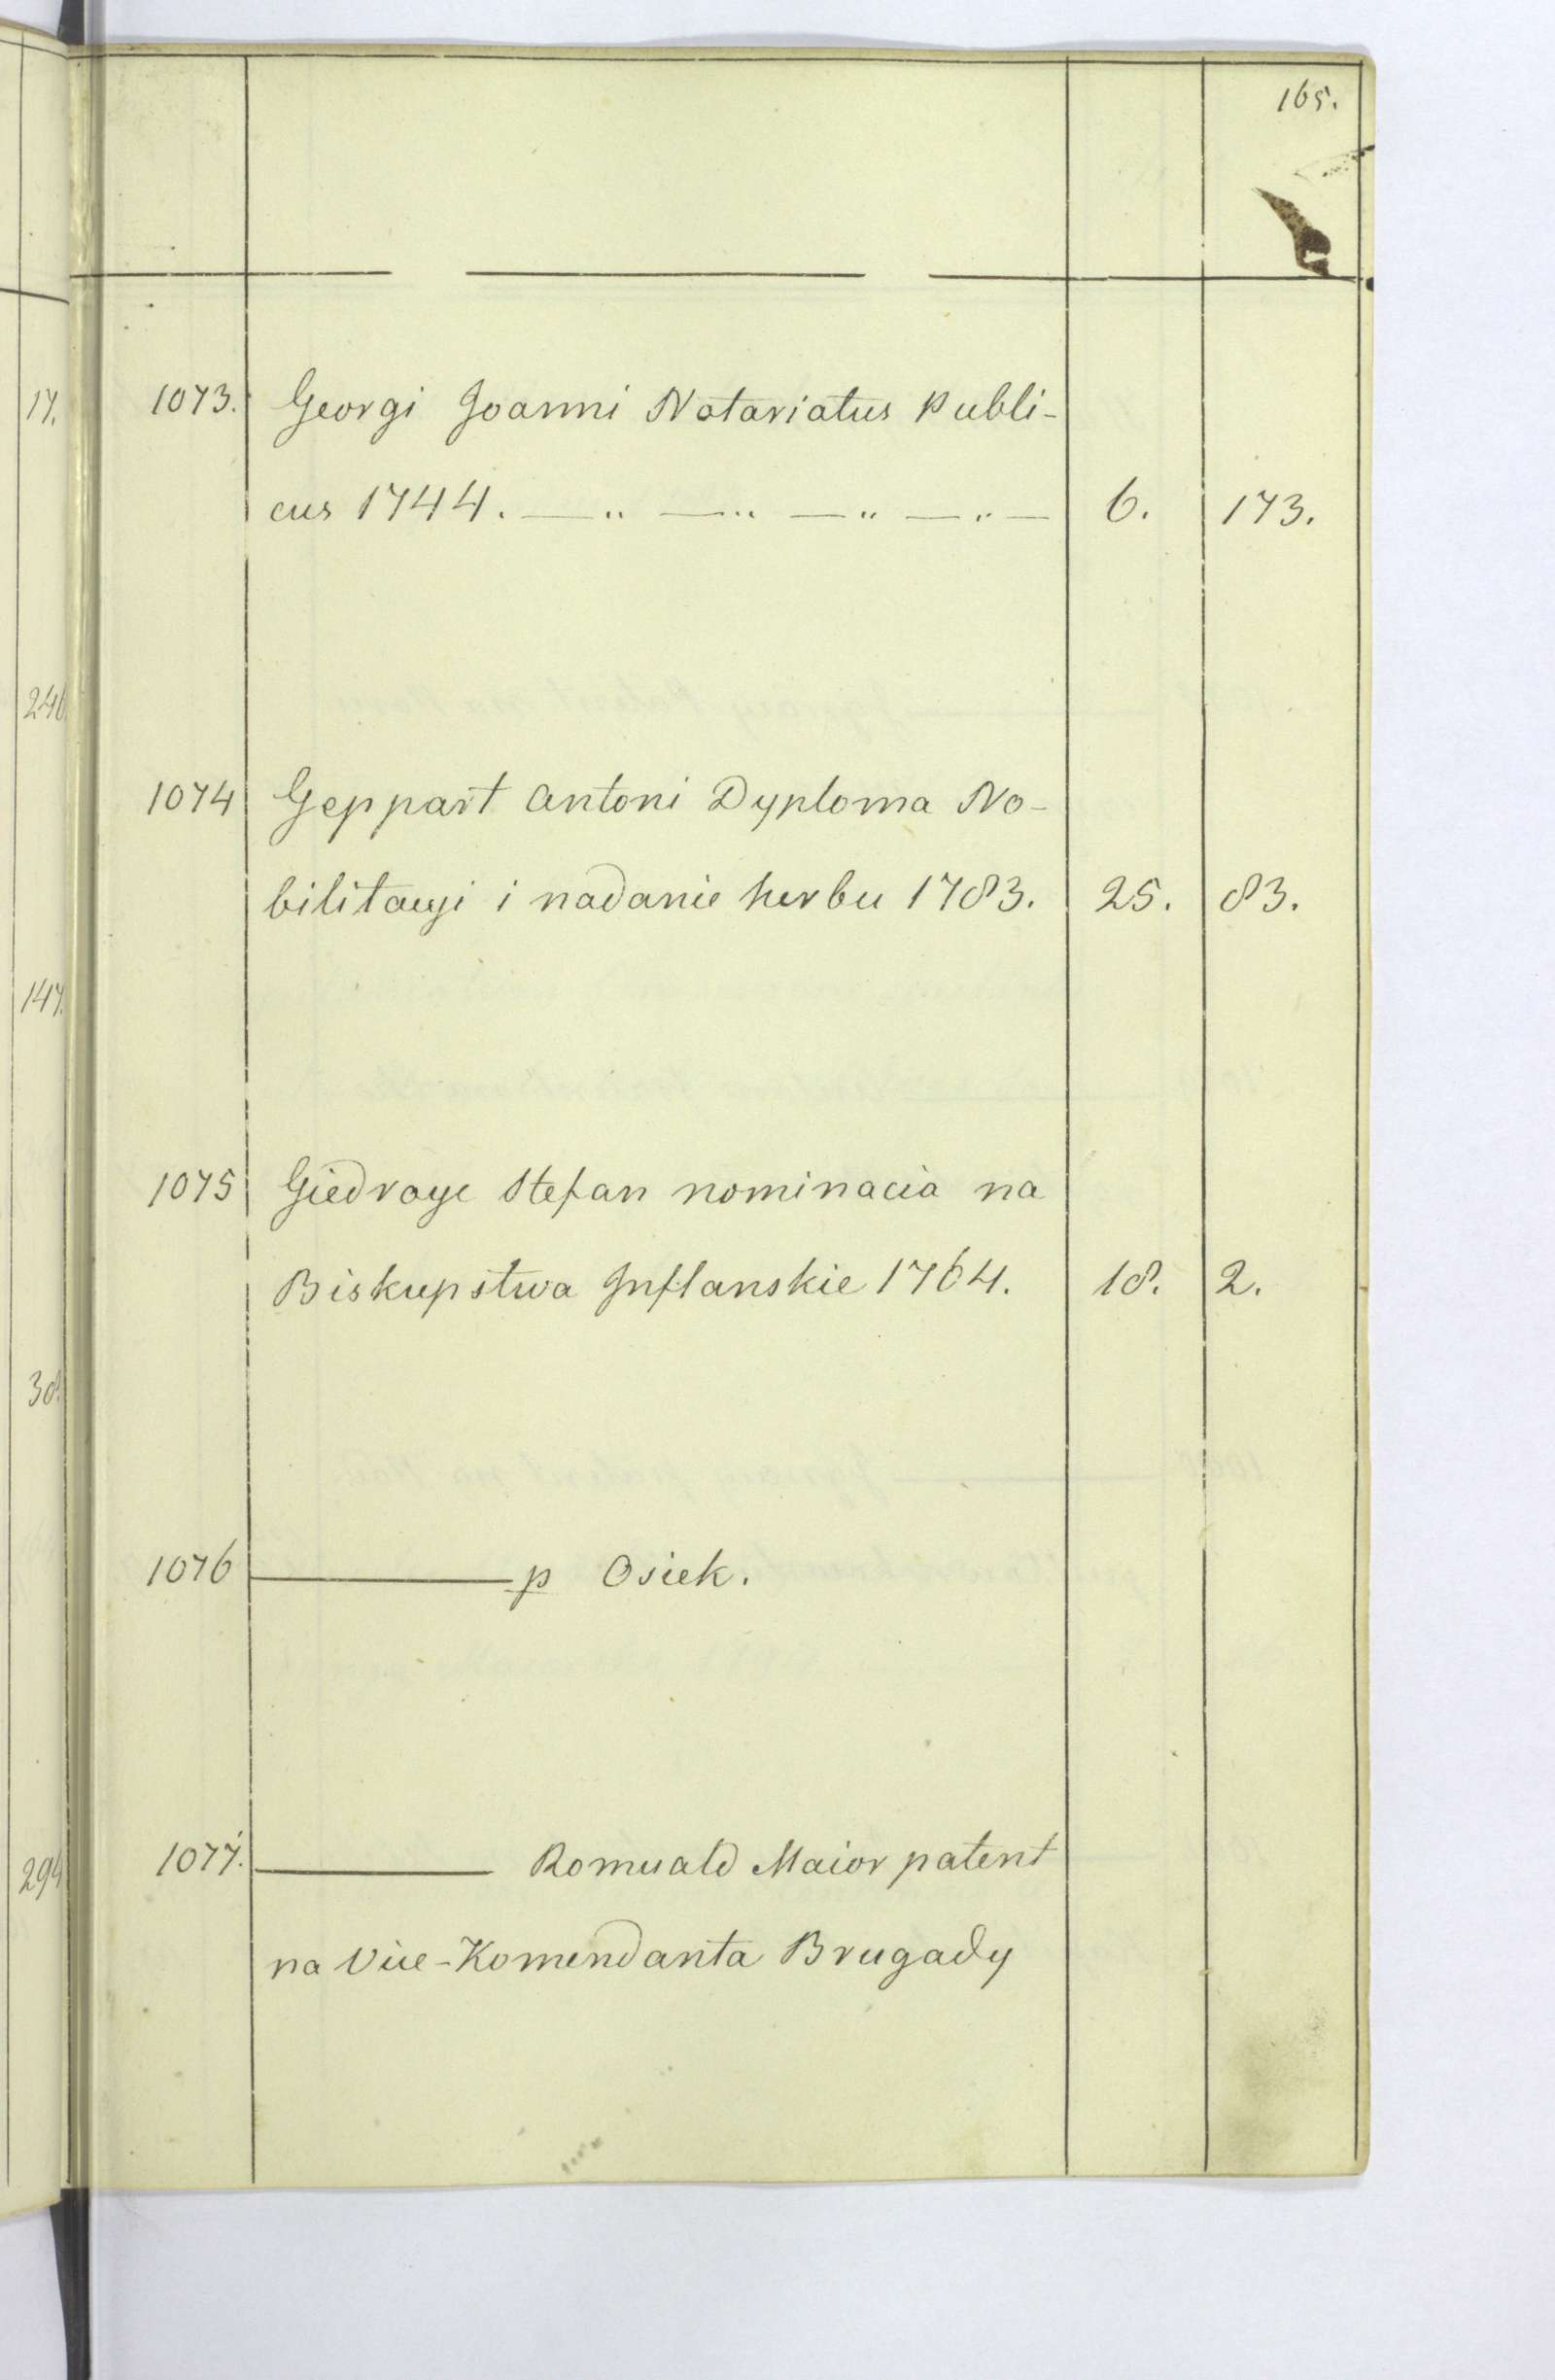 165.
1073. Georgi Joanni Notariatus Publi-
cus 1744. — „ — „ — „ — „ — 6. 173.
1074 Geppart Antoni Dyploma No-
bilitacyi i nadanie herbu 1783. 25. 83.
1075 Giedroyc Stefan nominacia na
Biskupstwa Inflanskie 1764. 18. 2.
1076 ——— p Osiek.
1077. ——— Romuald Maior patent
na Vice-Komendanta Brugady
17.
246
147.
38.
294